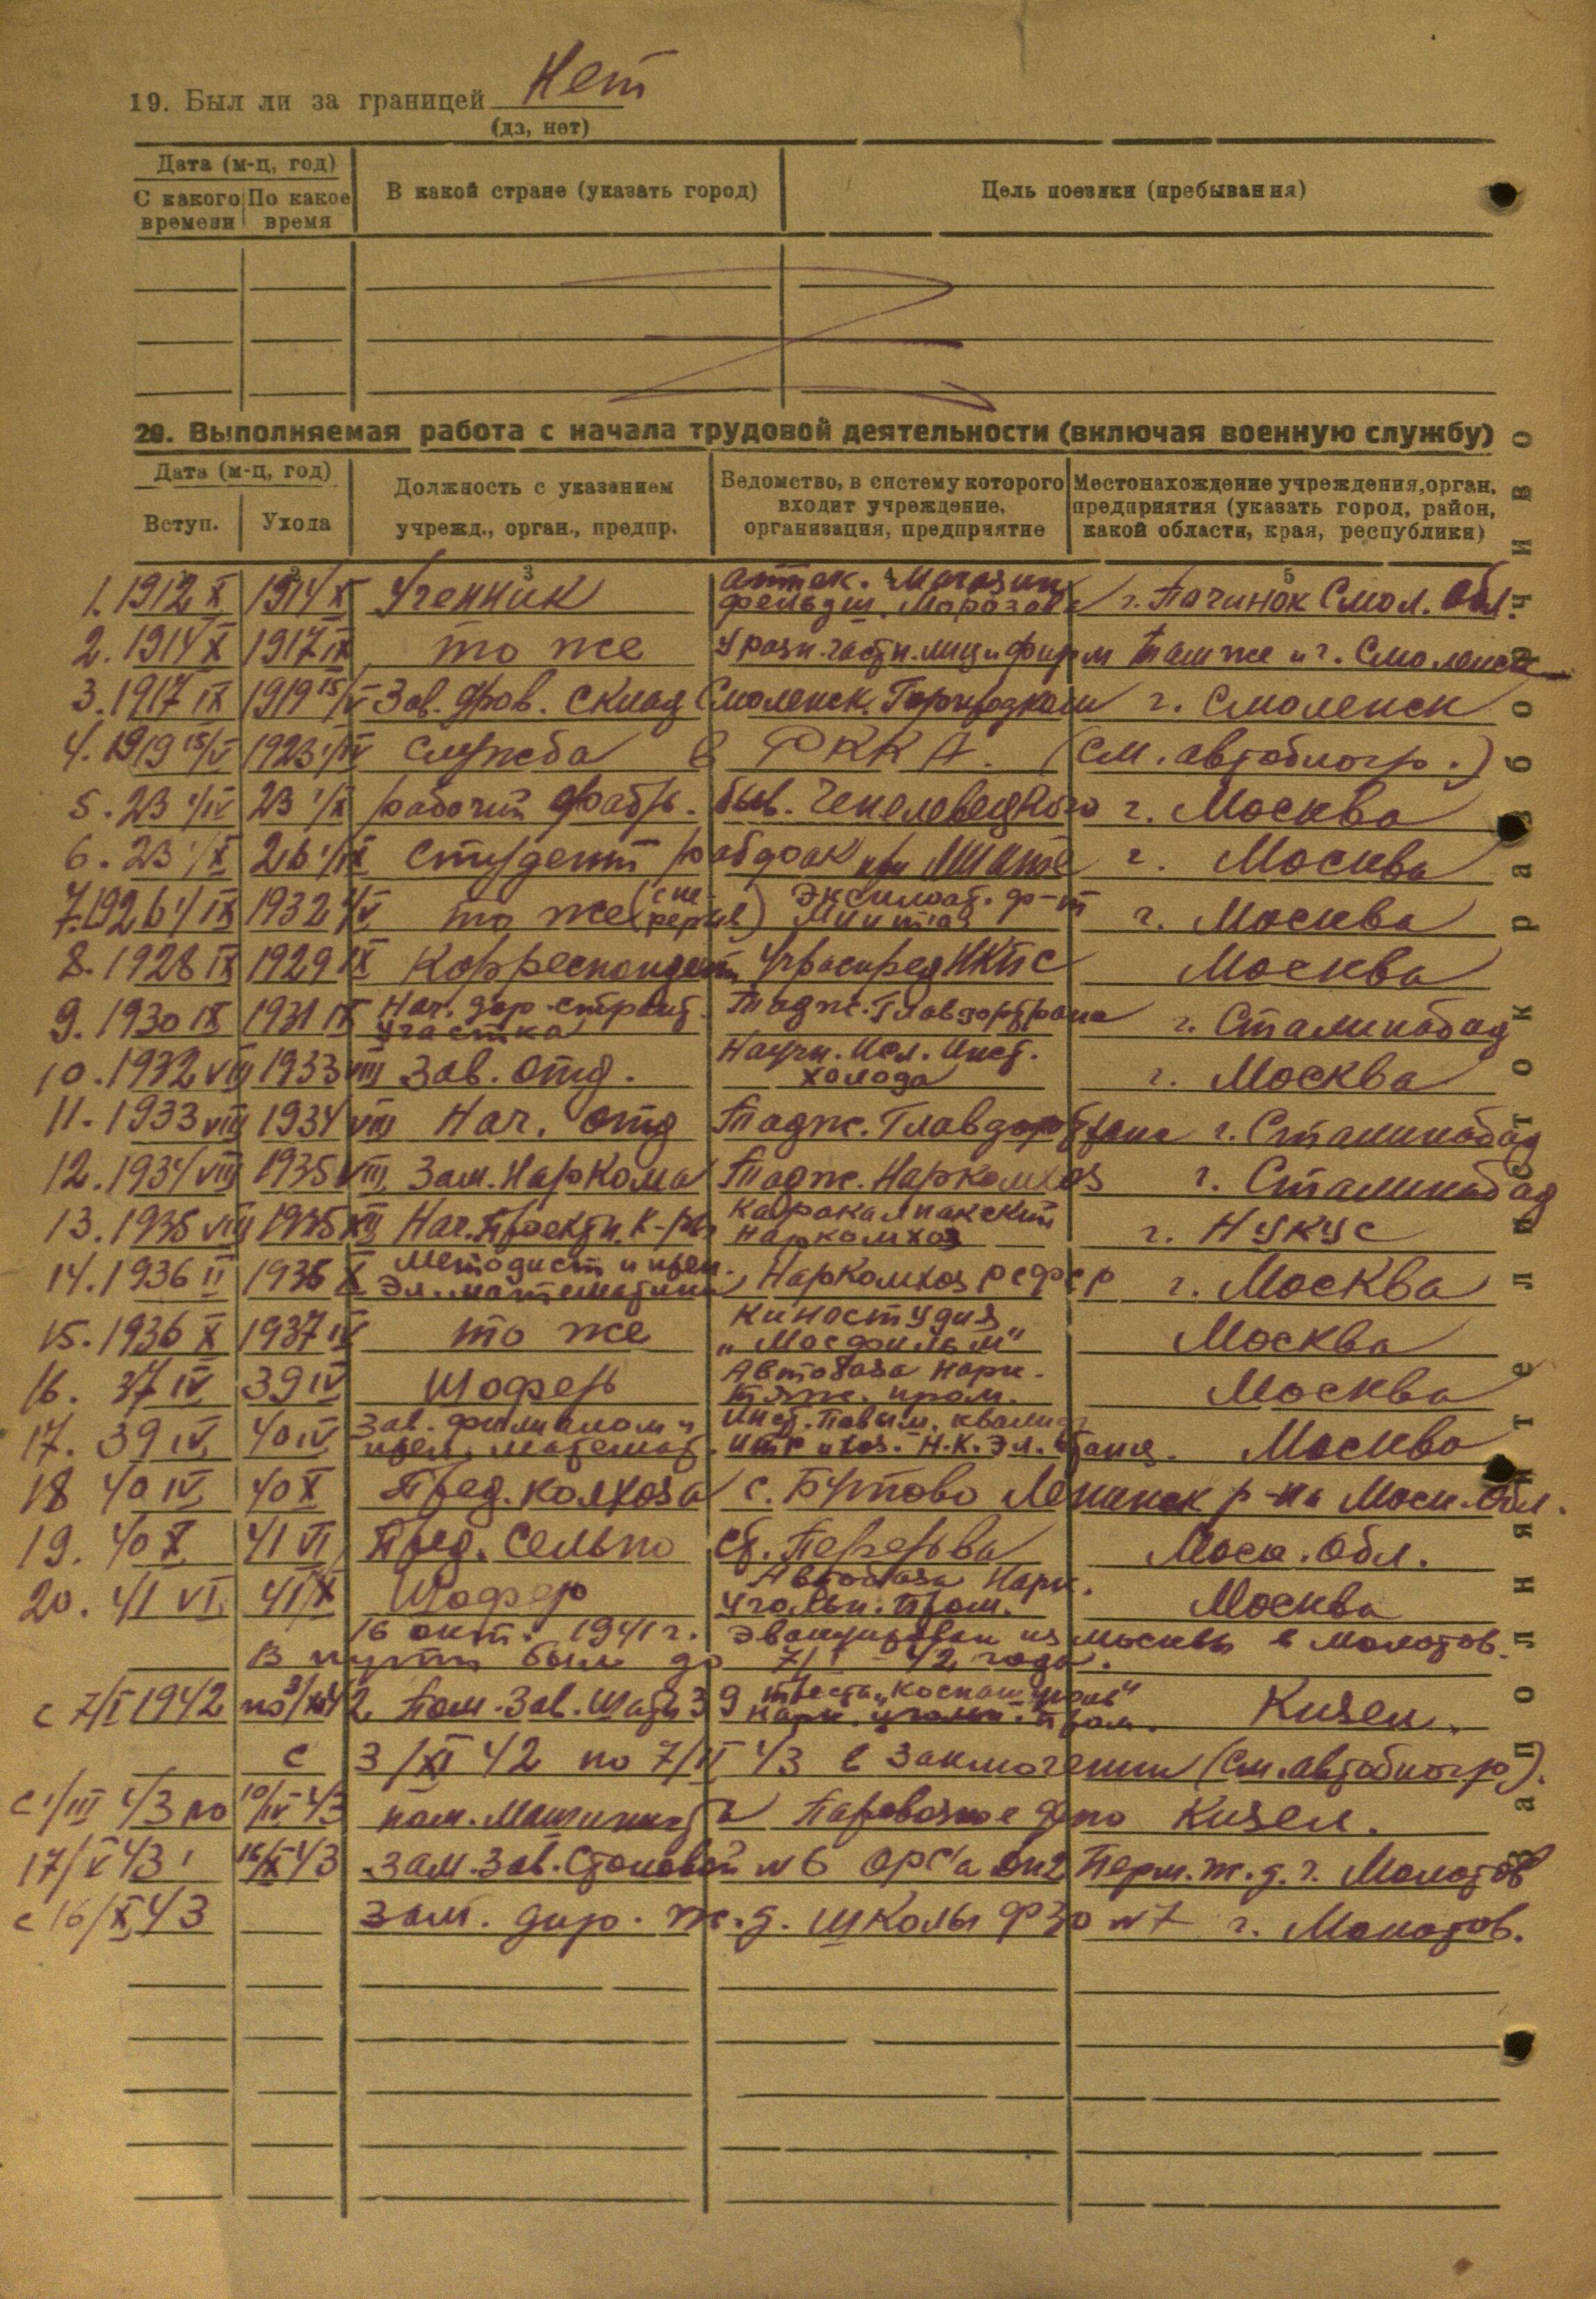 19. Был ли за границей Нет
(да, нет)
Дата (м-ц, год)
С какого времени
По какое время
В какой стране (указать город)
Цель поездки (пребывания)
20. Выполняемая работа с начала трудовой деятельности (включая военную службу)
Дата (м-ц, год)
Вступ.
Ухода
Должность с указанием
учрежд., орган., предпр.
Ведомство, в систему которого
входит учреждение,
организация, предприятие
Местонахождение учреждения, орган.
предприятия (указать город, район,
какой области, края, республики)
3 4 5
1. 1912 X 1914 X Ученик аптек. магазин фельдш. Морозова г. Починок Смол. обл.
2. 1914 X 1917 IX то же У разн. частн. лиц и фирм там же и г. Смоленск
3. 1917 IX 1919 15/V Зав. фов. склад Смоленск. г. Смоленск
4. 1919 15/V 1923 1/IV служба в РККА. (см. автобиогр.)
5. 23 1/IV 23 1/X рабочий фабр. быв. г. Москва
6. 23 1/X 26 1/IX студент рабфак при г. Москва
7. 1926 1/IX 1932 1/V то же (с перерыв) Эксплоат. ф-т Миита г. Москва
8. 1928 IX 1929 IX Корреспондент Учраспред НКПС Москва
9. 1930 IX 1931 IX Нач. дор. строит. участка Тадж. Главдортранс г. Сталинабад
10. 1932 VIII 1933 VIII Зав. отд. Научн. Исл. Инст. холода г. Москва
11. 1933 VIII 1934 VIII Нач. отд Тадж. Главдортранс г. Сталинабад
12. 1934 VIII 1935 VIII Зам. Наркома Тадж. Наркомхоз г. Сталинабад
13. 1935 VIII 1935 XII Нач. Проектн. К-ры Каракалпакский наркомхоз г. Нукус
14. 1936 II 1936 X Методист и преп. Эл. математики Наркомхоз РСФСР г. Москва
15. 1936 X 1937 IV то же Киностудия „Мосфильм" Москва
16. 37 IV 39 IV Шофер Автобаза Нарк. тяж. пром. Москва
17. 39 IV 40 IV Зав. филиалом и преп. математ. Инст. Повыш. квалиф. ИТР и хоз. Н.К. Эл. станц. Москва
18 40 IV 40 X Пред. колхоза с. Бутово Ленинск р-на Моск. обл.
19. 40 X 41 VI Пред. Сельпо ст. Перерва Моск. обл.
20. 41 VI 41 X Шофер Автобаза Нарк. Угольн. Пром. Москва
16 окт. 1941 г. Эвакуирован из Москвы в Молотов.
В пути был до 7/I - 42 года.
с 7/I 1942 по 3/XI 42 Пом. Зав. Шахты 39 треста „Коспашуголь" Нарк. угольн. пром. Кизел.
с 3/XI 42 по 7/II 43 в заключении (см. автобиогр).
с 1/III 43 по 10/IV 43 пом. Машиниста Паровозное депо Кизел.
17/V 43 16/X 43 зам. зав. Столовой № 6 ОРС'а Перм. ж. д. г. Молотов
с 16/X 43 зам. дир. ж. д. школы ФЗО № 7 г. Молотов.
Заполнительно кратко разборчиво